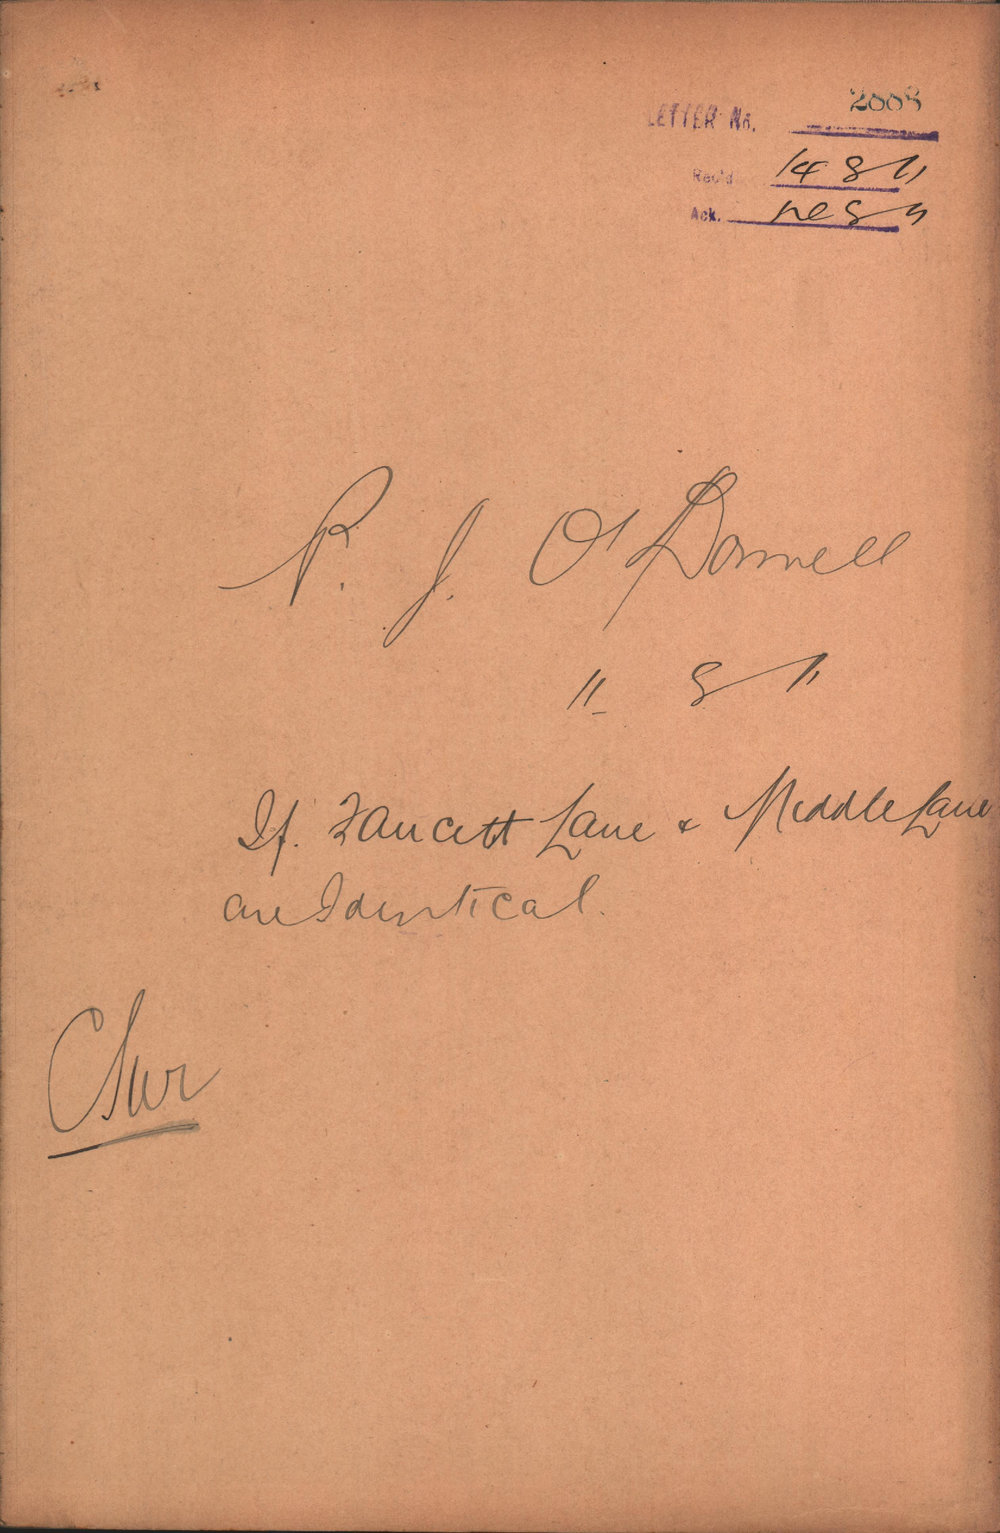 LETTER No. 2008
Rec'd 14 8 11
Ack.
P. J. O'Donnell
11 8 11
If. Faucett Lane & Middle Lane
are Identical.